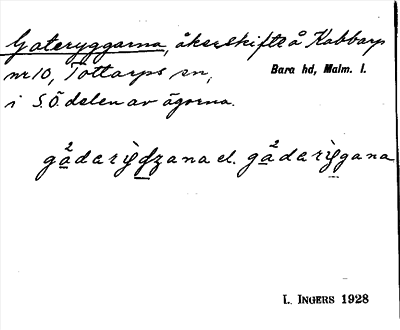 Gateryggarna, åkerskifte å Kabbarp
nr 10, Tottarps sn, Bara hd, Malm. l.
i S.Ö. delen av ägorna.
gådarìʤana el. gådarìggana
L. INGERS 1928